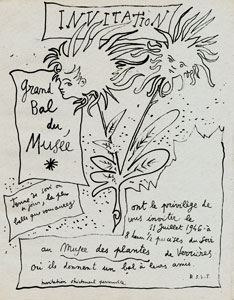 INVITATION
Grand
Bal
du
Musée
*
Tenue de soir ou
de jour, la plus
belle que vous aurez
ont le privilège de
vous inviter le
11 Juillet 1966 à
8 heures ½ précises du soir
au Musée des plantes de Verrières
où ils donnent un bal à leurs amis
invitation strictement personnelle
R.S.V.P